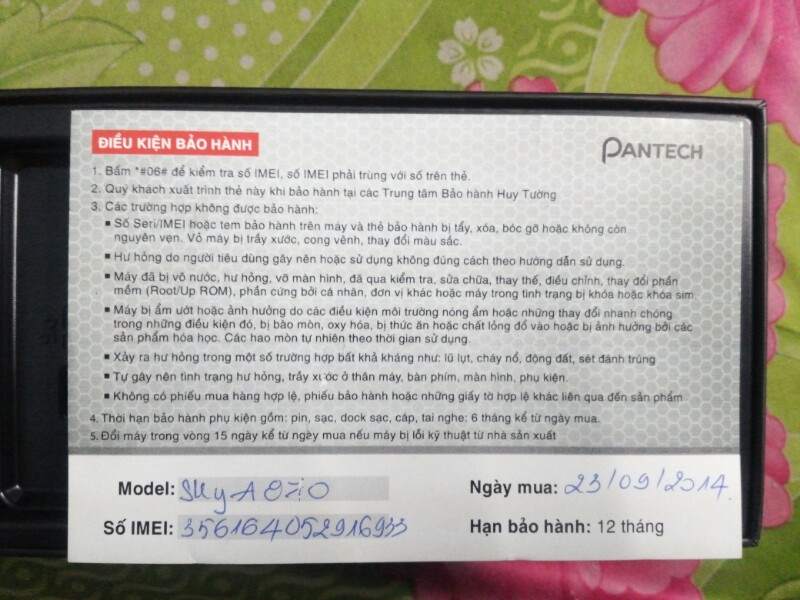 ĐIỀU KIỆN BẢO HÀNH
PANTECH
1. Bấm *#06# để kiểm tra số IMEI, số IMEI phải trùng với số trên thẻ.
2. Quý khách xuất trình thẻ này khi bảo hành tại các Trung tâm Bảo hành Huy Tường
3. Các trường hợp không được bảo hành:
▪ Số Seri/IMEI hoặc tem bảo hành trên máy và thẻ bảo hành bị tẩy, xóa, bóc gỡ hoặc không còn
nguyên vẹn. Vỏ máy bị trầy xước, cong vênh, thay đổi màu sắc.
▪ Hư hỏng do người tiêu dùng gây nên hoặc sử dụng không đúng cách theo hướng dẫn sử dụng.
▪ Máy đã bị vô nước, hư hỏng, vỡ màn hình, đã qua kiểm tra, sửa chữa, thay thế, điều chỉnh, thay đổi phần
mềm (Root/Up ROM), phần cứng bởi cá nhân, đơn vị khác hoặc máy trong tình trạng bị khóa hoặc khóa sim.
▪ Máy bị ẩm ướt hoặc ảnh hưởng do các điều kiện môi trường nóng ẩm hoặc những thay đổi nhanh chóng
trong những điều kiện đó, bị bào mòn, oxy hóa, bị thức ăn hoặc chất lỏng đổ vào hoặc bị ảnh hưởng bởi các
sản phẩm hóa học. Các hao mòn tự nhiên theo thời gian sử dụng.
▪ Xảy ra hư hỏng trong một số trường hợp bất khả kháng như: lũ lụt, cháy nổ, động đất, sét đánh trúng
▪ Tự gây nên tình trạng hư hỏng, trầy xước ở thân máy, bàn phím, màn hình, phụ kiện.
▪ Không có phiếu mua hàng hợp lệ, phiếu bảo hành hoặc những giấy tờ hợp lệ khác liên qua đến sản phẩm
4. Thời hạn bảo hành phụ kiện gồm: pin, sạc, dock sạc, cáp, tai nghe: 6 tháng kể từ ngày mua.
5. Đổi máy trong vòng 15 ngày kể từ ngày mua nếu máy bị lỗi kỹ thuật từ nhà sản xuất
Model: Sky A870
Ngày mua: 23/09/2014
Số IMEI: 356164052916933
Hạn bảo hành: 12 tháng